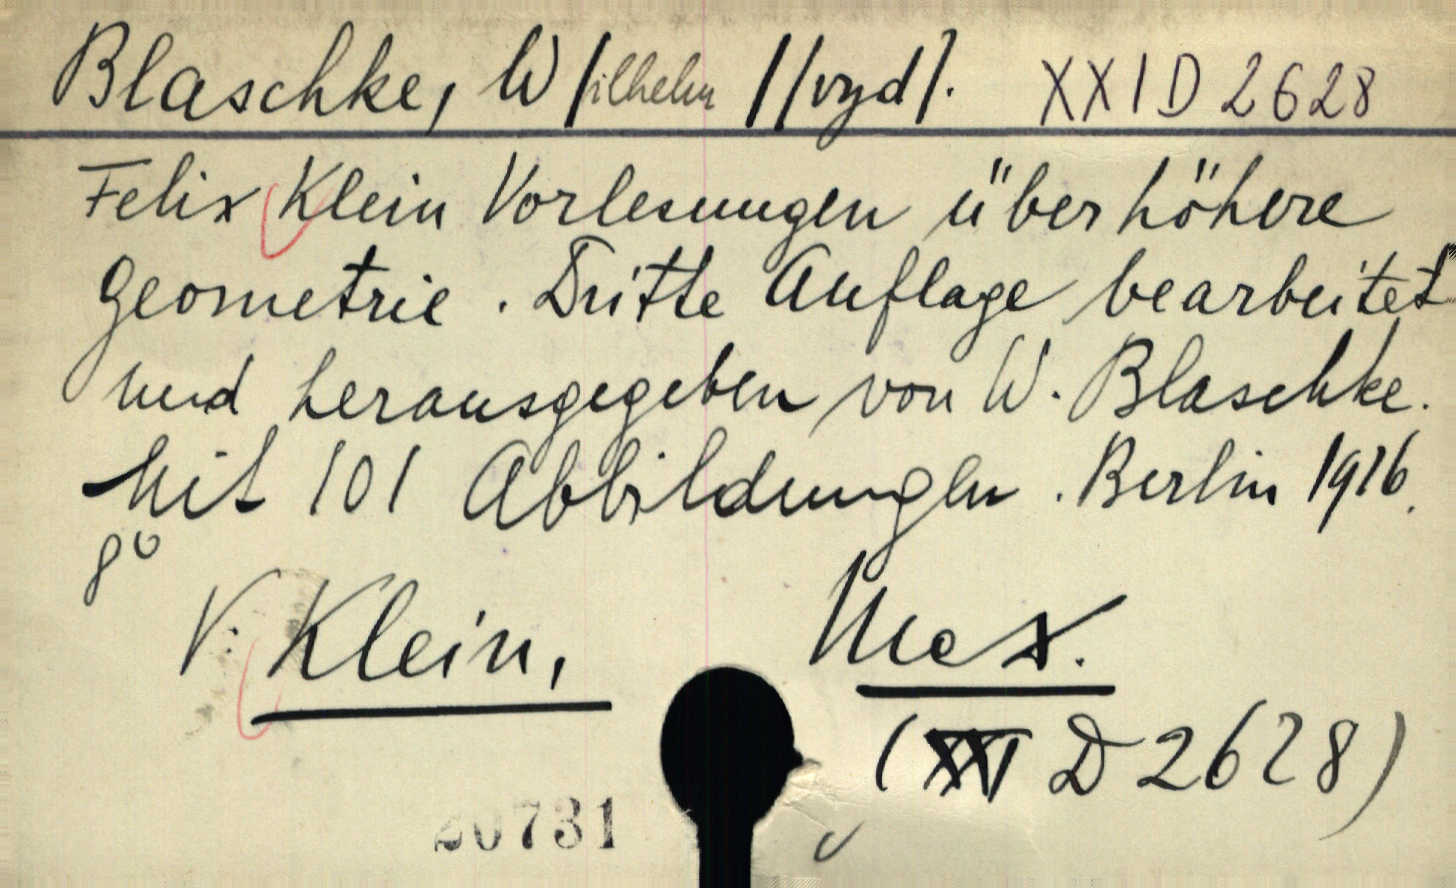 Blaschke, W/ilhelm //vyd/. XXI D 2628
Felix Klein Vorlesungen über höhere
Geometrie. Dritte Auflage bearbeitet
und herausgegeben von W. Blaschke.
Mit 101 Abbildungen. Berlin 1926.
8°
V: Klein,
(XXI D 2628)
20731